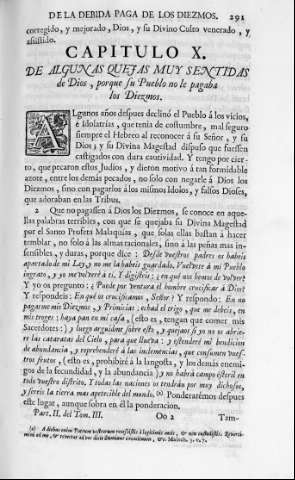 DE LA DEBIDA PAGA DE LOS DIEZMOS. 291
corregido, y mejorado, Dios, y su Divino Culto venerado, y
asistido.
CAPITULO X.
DE ALGUNAS QUEJAS MUY SENTIDAS
de Dios, porque su Pueblo no le pagaba
los Diezmos.
ALganos años despues declinò el Pueblo à los vicios,
è idolatrias, que tenia de costumbre, mal seguro
siempre el Hebreo al reconocer à su Señor, y su
Dios; y su Divina Magestad dispuso que fuessen
castigados con dara cautividad. Y tengo por cier-
to, que pecaron estos Judios, y dieron motivo à tan formidable
azote, entre los demàs pecados, no solo con negarle à Dios los
Diezmos, sino con pagarlos à los mismos Idolos, y falsos Dioses,
que adoraban en las Tribus.
2 Que no pagassen à Dios los Diezmos, se conoce en aque-
llas palabras terribles, con que se quejaba su Divina Magestad
por el Santo Profeta Malaquias, que solas ellas bastan à hacer
temblar, no solo à las almas racionales, sino à las peñas mas in-
sensibles, y duras, porque dice: Desde vuestros padres os habeis
apartado de mi Ley, y no me la habeis guardado. Vuelvete à mi Pueblo
ingrato, y yo me volverè à ti. Y digisteis: ¿en què nos hemos de volver?
Y yo os pregunto: ¿Puede por ventura el hombre crucificar à Dios?
Y respondeis: En què os crucificamos, Señor? Y respondo: En no
pagarme mis Diezmos, y Primicias: echad el trigo, que me debeis, en
mis troges: haya pan en mi casa, (esto es, tengan que comer mis
Sacerdotes:) y luego arguidme sobre esto, y quejaos si yo no os abrie-
re las cataratas del Cielo, para que llueva: y estenderè mi bendicion
de abundancia, y reprehenderè à las inclemencias, que consumen vues-
tros frutos, (esto es, prohibirè à la langosta, y los demàs enemi-
gos de la fecundidad, y la abundancia) y no habrà campo estèril en
todo vuestro distrito. Y todas las naciones os tendràn por muy dichosos,
y sereis la tierra mas apetecible del mundo. (a) Ponderarèmos despues
este lugar, aunque sobra en èl la ponderacion.
Part. II. del Tom. III. Oo 2 Tam-
(a) A diebus enim Patrum vestrorum recessistis à legitimis meis, & non custodistis. Reverti-
mini ad me, & revertar ad vos dicit Dominus exercituum, &c. Malach. 3. v. 7.